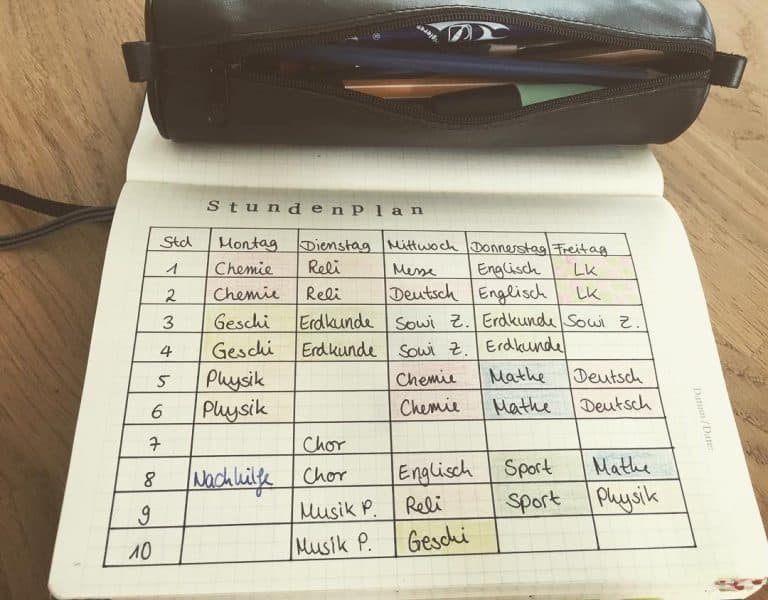 Stundenplan
Std Montag Dienstag Mittwoch Donnerstag Freitag
1 Chemie Reli Messe Englisch LK
2 Chemie Reli Deutsch Englisch LK
3 Geschi Erdkunde Sowi Z. Erdkunde Sowi Z.
4 Geschi Erdkunde Sowi Z. Erdkunde
5 Physik Chemie Mathe Deutsch
6 Physik Chemie Mathe Deutsch
7 Chor
8 Nachhilfe Chor Englisch Sport Mathe
9 Musik P. Reli Sport Physik
10 Musik P. Geschi
Datum/Date: